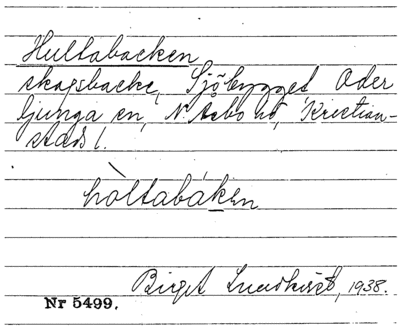 Hultabacken
skogsbacke, Sjöbygget Oder
ljunga sn, N. Åsbo hd, Kristian-
stads l.
hòltabákен
Birgit Lundkvist, 1938.
Nr 5499.